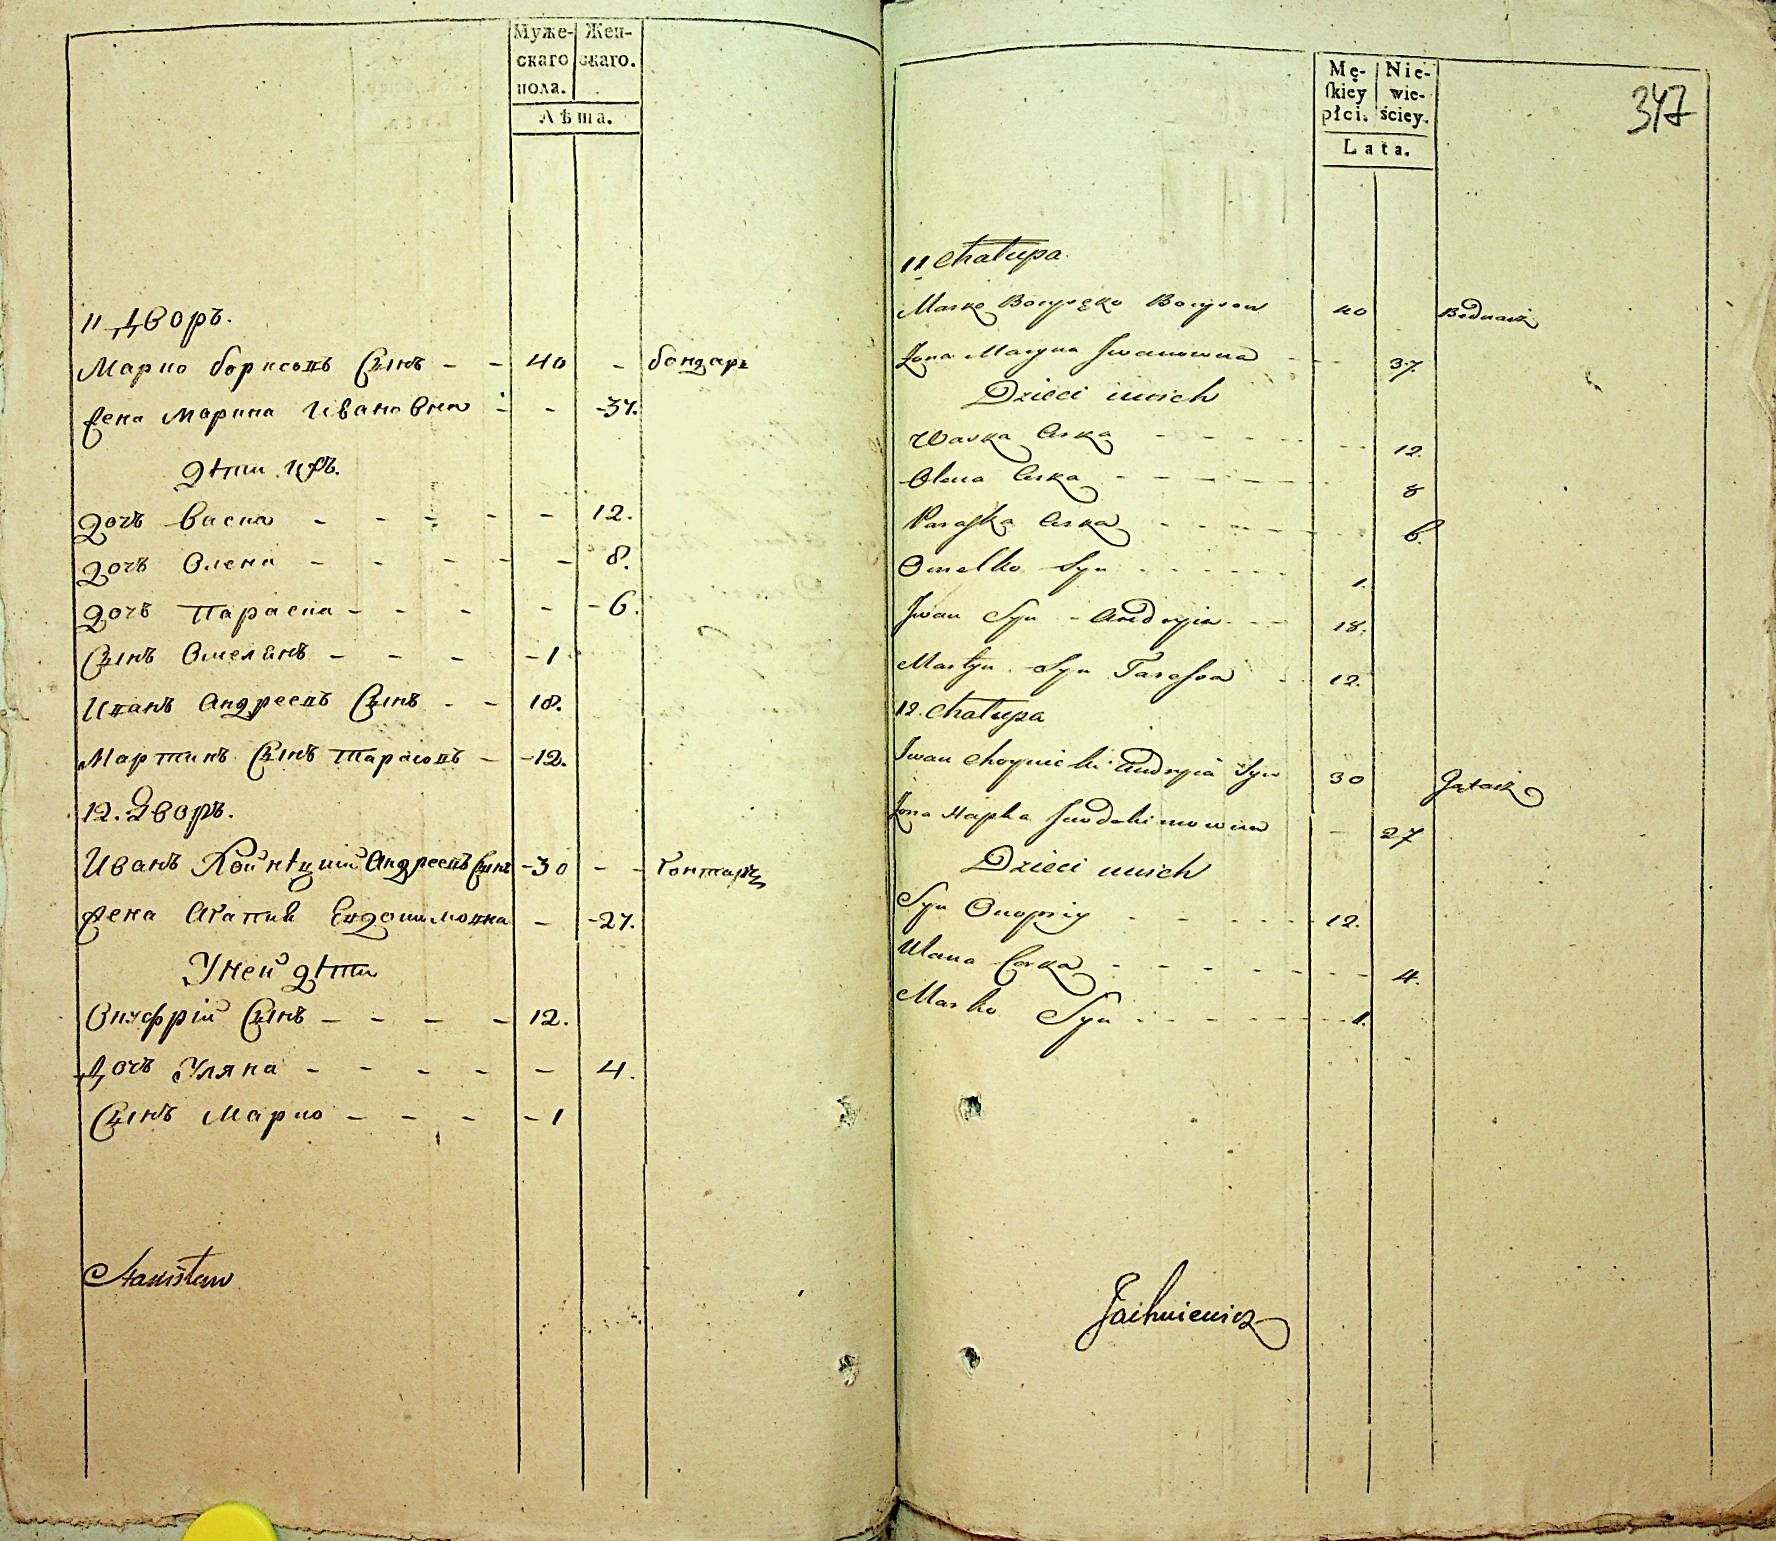 Муже- Жен-
скаго скаго.
пола.
Лѣта.
11 Дворъ.
Марко борисовъ Сынъ - - 40 - бондарь
Жена Марина Ивановна - - - 37.
дѣти ихъ.
дочъ Васка - - - - - 12.
дочъ Олена - - - - - 8.
дочъ Параска - - - - - 6.
Сынъ Омелянъ - - - - 1
Иванъ Андреевъ Сынъ - - 18.
Мартинъ Сынъ Тарасовъ - - 12.
12. Дворъ.
Иванъ Андреевъ Сынъ - 30 - - Гонтарь
Жена Агапия Евдокимовна - - 27.
У ней дѣти
Онуфрій Сынъ - - - - 12.
Дочъ Уляна - - - - - 4.
Сынъ Марко - - - - 1
Stanisław
Mę- Nie-
skiey wie-
płci. ściey.
Lata.
347
11 Chałupa
Marko Borysow 40 Bednarz
Żona Maryna Iwanowna - - - 37.
Dzieci unich
Waska Corka - - - - - - 12.
Olena Corka - - - - - - 8
Paraska Corka - - - - - - 6.
Omelko Syn - - - - - - 1.
Iwan Syn - Andryia - - - 18.
Martyn Syn Tarasow - 12.
12. Chałupa
Iwan Choynicki Andryia Syn 30
Żona Hapka Iewdokimowna - 27
Dzieci unich
Syn Onopriy - - - - - - 12.
Ulana Corka - - - - - - - 4.
Marko Syn - - - - - - - 1.
Jachniewicz